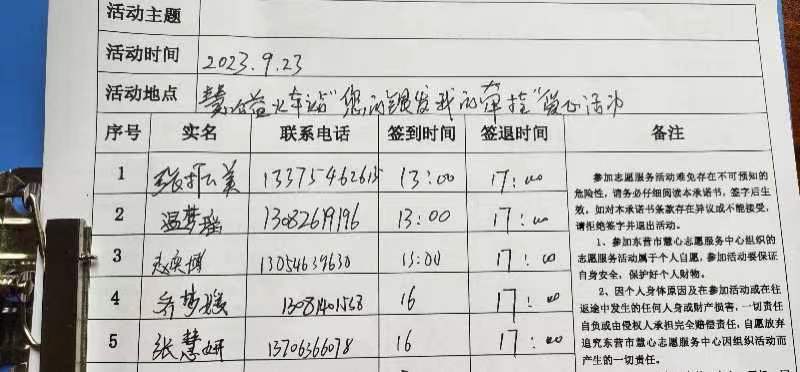 活动主题
活动时间 2023.9.23
活动地点 火车站"您的银发我的牵挂"公益活动
序号 实名 联系电话 签到时间 签退时间 备注
1 美 13375462615 13:00 17:00
2 温梦瑶 13082619196 13:00 17:00
3 13054639630 13:00 17:00
4 乔梦媛 13081401568 16 17:00
5 张慧妍 13706366078 16 17:00
参加志愿服务活动难免存在不可预知的
危险性，请务必仔细阅读本承诺书，签字后生
效。如对本承诺书条款存在异议或不能接受，
请拒绝签字并退出活动。
1、参加东营市慧心志愿服务中心组织的
志愿服务活动属于个人自愿，参加活动要保证
自身安全，保护好个人财物。
2、因个人身体原因及在参加活动或在往
返途中发生的任何人身或财产损害，一切责任
自负或由侵权人承担完全赔偿责任，自愿放弃
追究东营市慧心志愿服务中心因组织活动而
产生的一切责任。